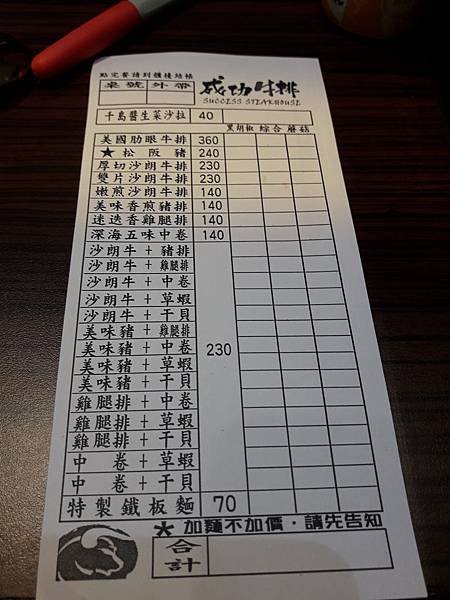 點完餐請到櫃檯結帳
桌號 外帶
成功牛排
SUCCESS STEAKHOUSE
千島醬生菜沙拉 40
黑胡椒 綜合 蘑菇
美國肋眼牛排 360
★松阪豬 240
厚切沙朗牛排 230
雙片沙朗牛排 230
嫩煎沙朗牛排 140
美味香煎豬排 140
迷迭香雞腿排 140
深海五味中卷 140
沙朗牛+豬排
沙朗牛+雞腿排
沙朗牛+中卷
沙朗牛+草蝦
沙朗牛+干貝
美味豬+雞腿排
美味豬+中卷 230
美味豬+草蝦
美味豬+干貝
雞腿排+中卷
雞腿排+草蝦
雞腿排+干貝
中卷+草蝦
中卷+干貝
特製鐵板麵 70
★加麵不加價,請先告知
合計